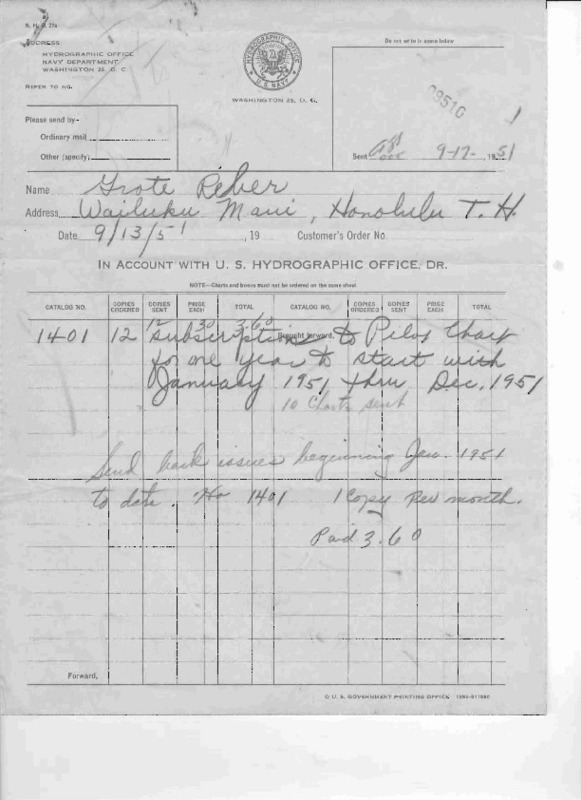 N. H. O. 27a
ADDRESS
HYDROGRAPHIC OFFICE
NAVY DEPARTMENT
WASHINGTON 25, D. C.
REFER TO NO.
HYDROGRAPHIC OFFICE
U. S. NAVY
WASHINGTON 25, D. C.
Do not write in space below
09510
1
Sent 9-17- 1951
Please send by-
Ordinary mail
Other (specify)
Name Grote Reber
Address Wailuku Maui, Honolulu T. H.
Date 9/13/51, 19 Customer's Order No.
IN ACCOUNT WITH U. S. HYDROGRAPHIC OFFICE, DR.
NOTE—Charts and books must not be ordered on the same sheet
CATALOG NO. COPIES ORDERED COPIES SENT PRICE EACH TOTAL CATALOG NO. COPIES ORDERED COPIES SENT PRICE EACH TOTAL
12 30 3.60
1401 12 subscriptions Brought forward, to Pilot Chart
for one year to start with
January 1951 thru Dec. 1951
10 Charts sent
Send back issues beginning Jan. 1951
to date. No 1401 1 Copy per month.
Paid 3.60
Forward,
U. S. GOVERNMENT PRINTING OFFICE